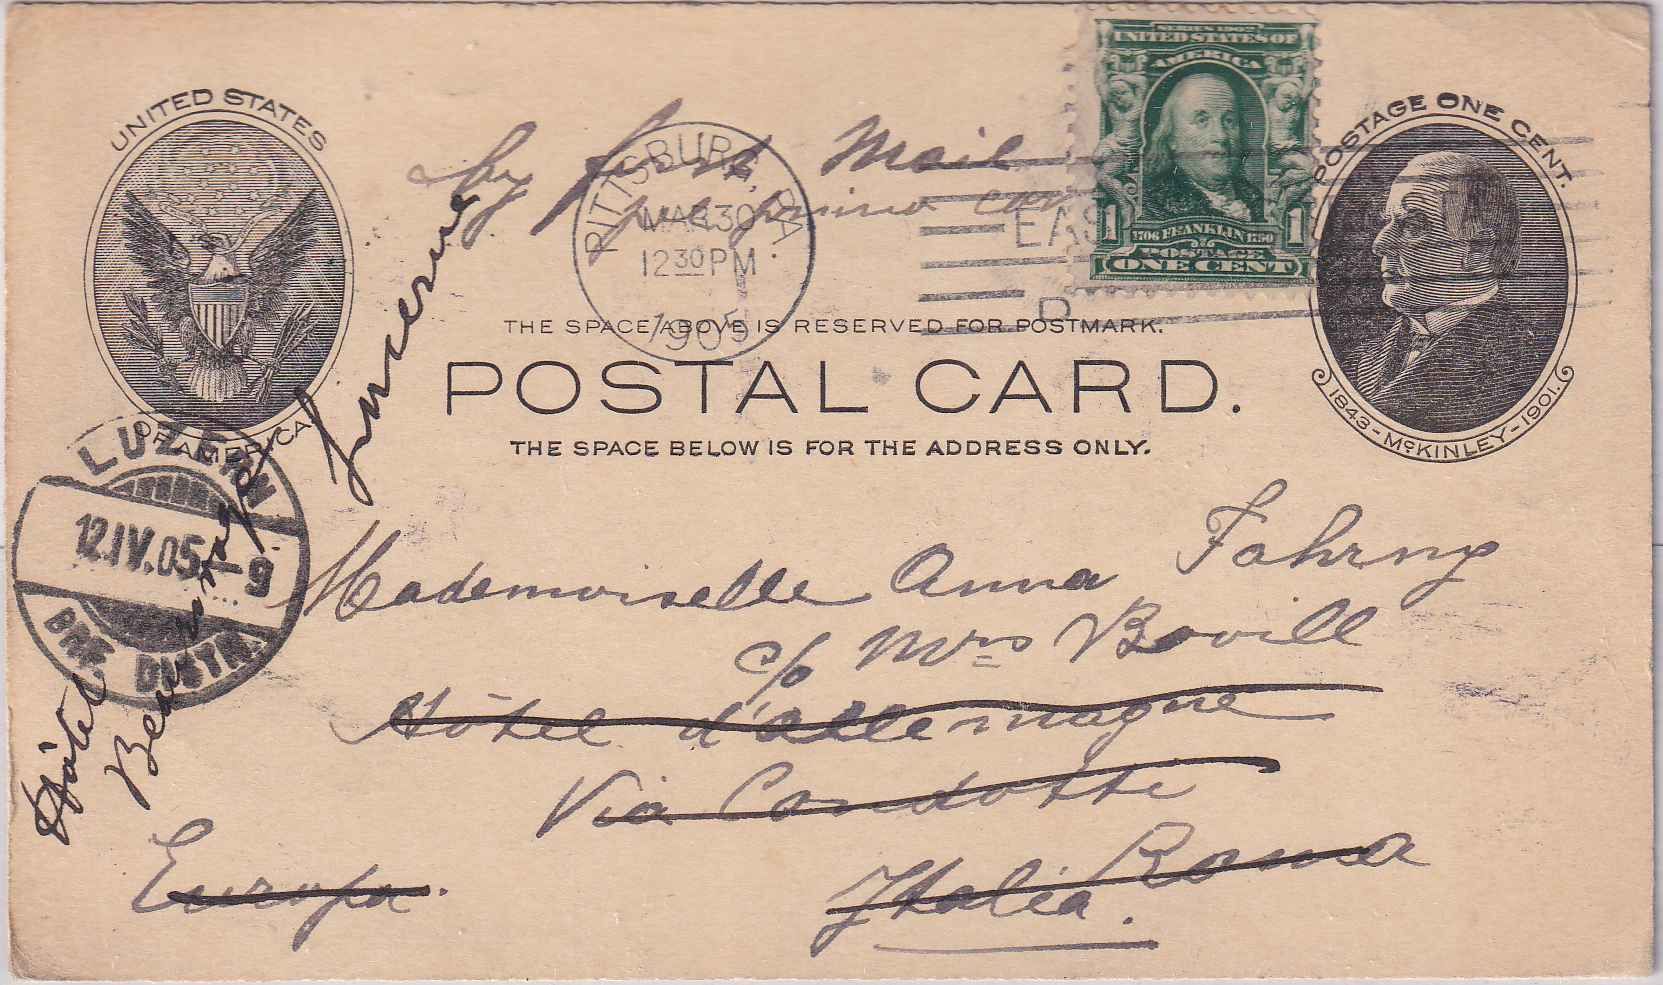 UNITED STATES
OF AMERICA
by first Mail
per primo corr
PITTSBURG, PA
MAR 30
12 30 PM
1905
EAS
D
SERIES 1902
UNITED STATES OF
AMERICA
1 1706 FRANKLIN 1790 1
POSTAGE
ONE CENT
POSTAGE ONE CENT.
1843 - McKINLEY - 1901.
THE SPACE ABOVE IS RESERVED FOR POSTMARK.
POSTAL CARD.
THE SPACE BELOW IS FOR THE ADDRESS ONLY.
LUZERN
12.IV.05.-9
BRF. DISTR.
Hôtel
Beaurivage
Lucerne
Mademoiselle Anna Fahrny
c/o Mrs Bovill
Hôtel d'allemagne
Via Condotti
Roma
Europa.
Italia.